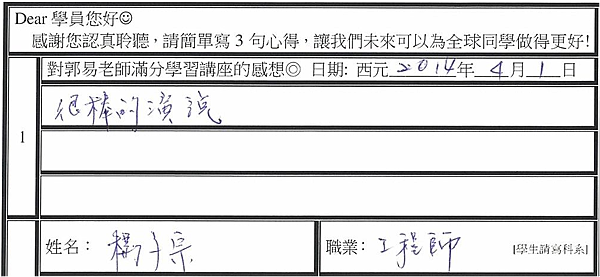 Dear 學員您好☺
感謝您認真聆聽，請簡單寫 3 句心得，讓我們未來可以為全球同學做得更好!
對郭易老師滿分學習講座的感想◎ 日期: 西元 2014 年 4 月 1 日
1
很棒的演說
姓名： 楊子宗
職業： 工程師 [學生請寫科系]